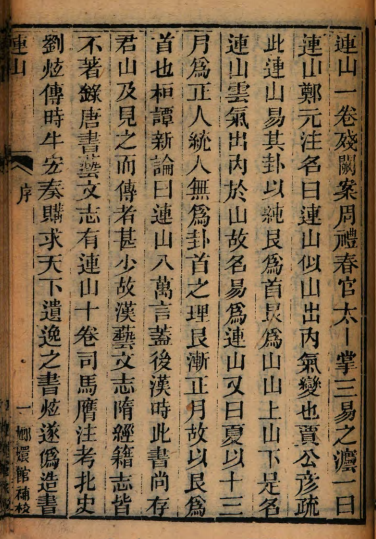 連山一卷殘闕案周禮春官太卜掌三易之灋一曰
連山鄭元注名曰連山似山出內氣變也賈公彥疏
此連山易其卦以純艮爲首艮爲山山上山下是名
連山雲氣出內於山故名易爲連山又曰夏以十三
月爲正人統人無爲卦首之理艮漸正月故以艮爲
首也桓譚新論曰連山八萬言葢後漢時此書尚存
君山及見之而傳者甚少故漢藝文志隋經籍志皆
不著錄唐書藝文志有連山十卷司馬膺注考北史
劉炫傳時牛宏奏購求天下遺逸之書炫遂僞造書
連山
序
一
嫏嬛館補校